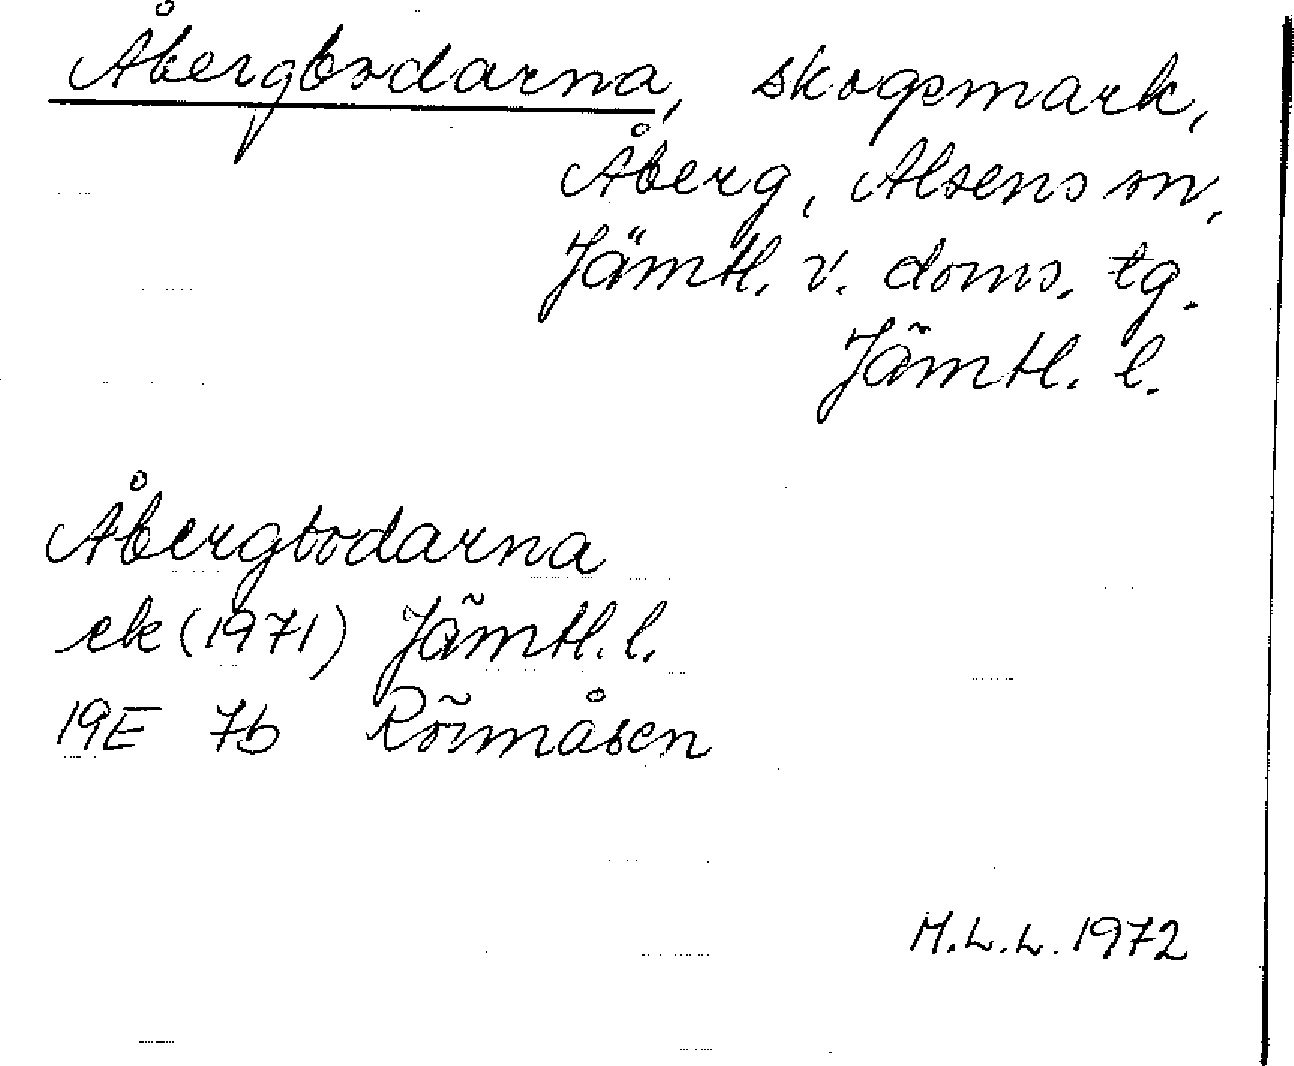 Åbergbodarna, skogsmark,
Åberg, Alsens sn,
Jämtl. v. doms. tg.
Jämtl. l.
Åbergbodarna
ek (1971) Jämtl. l.
19E 7b Rörmåsen
M.L.L. 1972